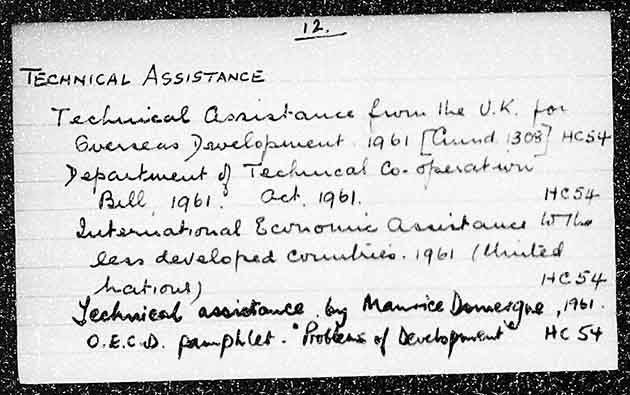 12.
TECHNICAL ASSISTANCE
Technical Assistance from the U.K. for
Overseas Development. 1961 [Cmnd 1308] HC54
Department of Technical Co-operation
Bill, 1961. Act, 1961. HC54
International Economic Assistance to the
less developed countries. 1961 (United
Nations) HC54
Technical assistance, by Maurice Domergue, 1961.
O.E.C.D. pamphlet - "Problems of Development" HC 54